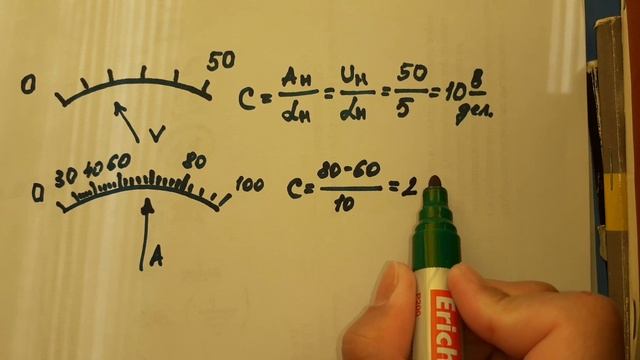 0 50
C = Aн/αн = Uн/αн = 50/5 = 10 В/дел.
V
0 30 40 60 80 100
C = 80-60/10 = 2
A
Erich